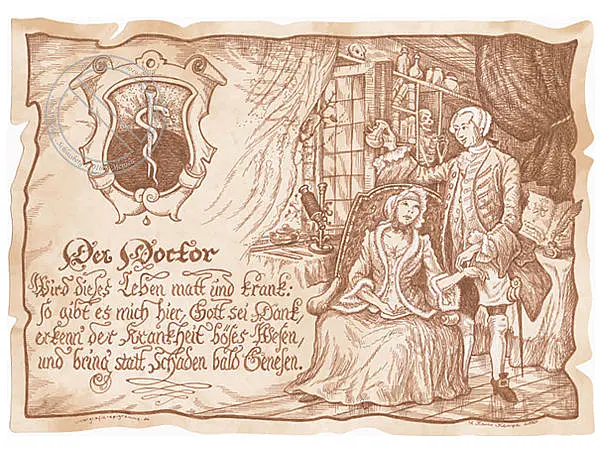 Der Doctor
Wird dieses Leben matt und krank:
so gibt es mich hier, Gott sei Dank,
erkenn' der Krankheit böses Wesen,
und bring' statt Schaden bald Genesen.